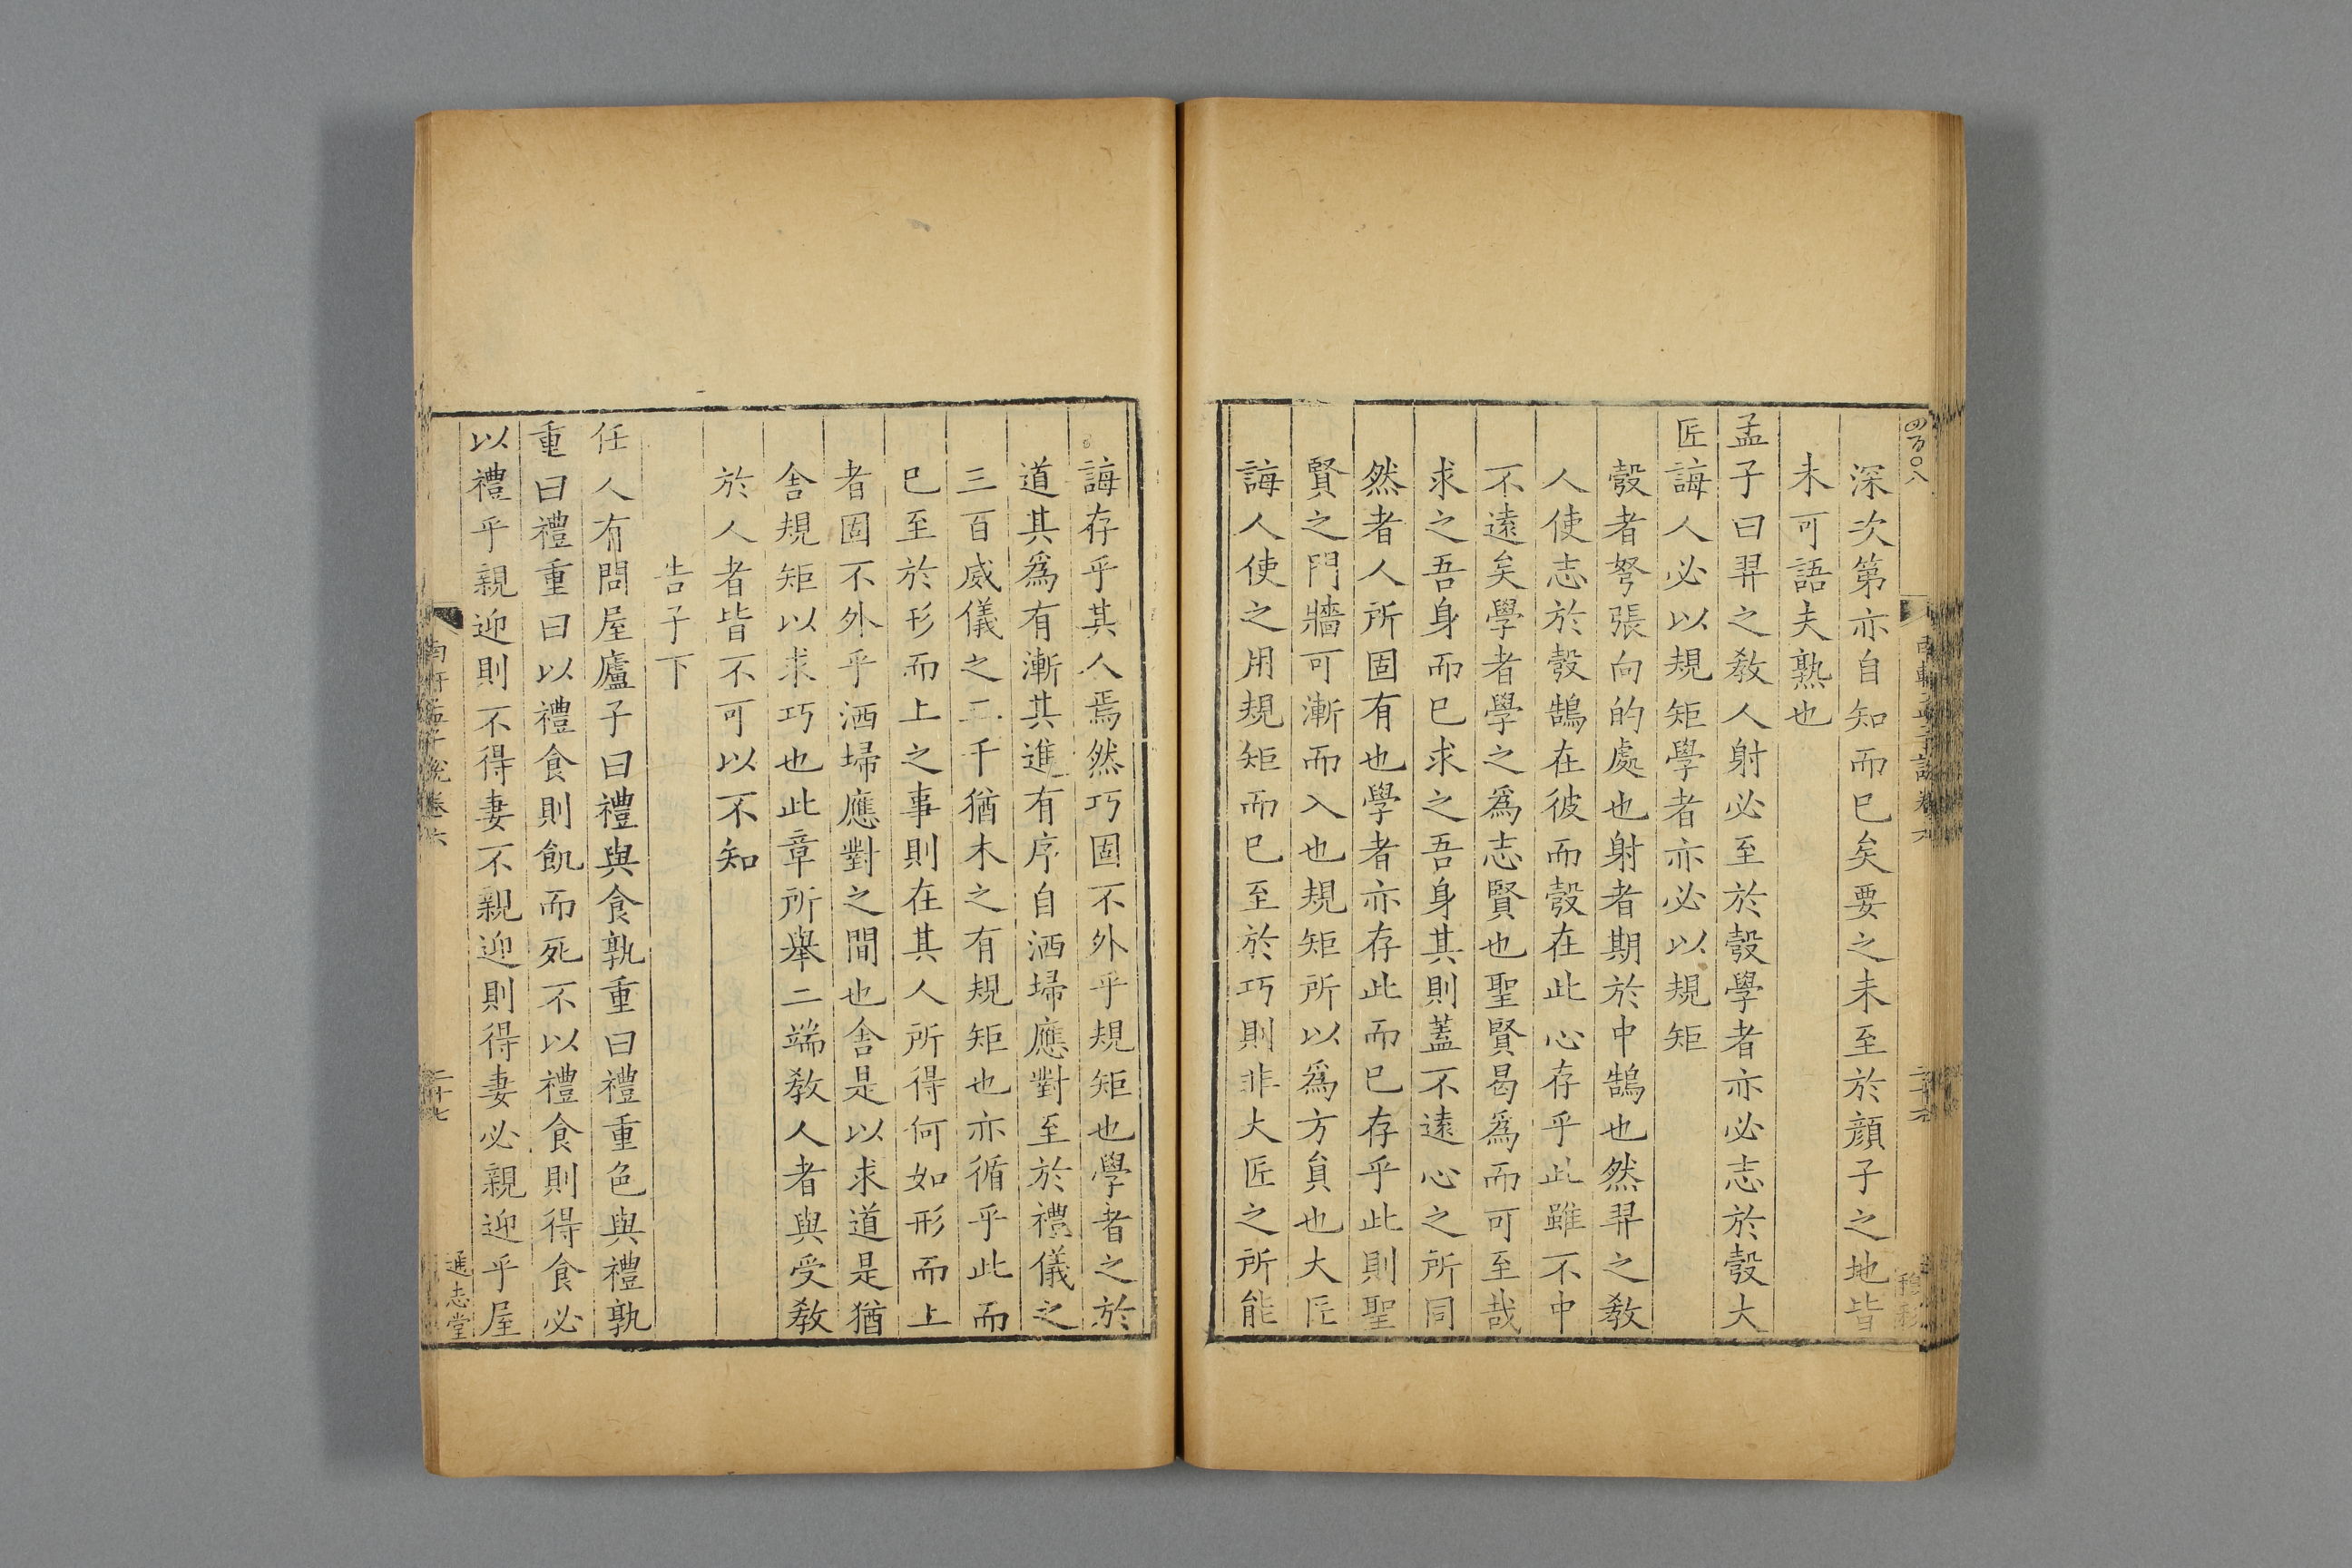 四百〇八
南軒孟子說卷六
深次第亦自知而已矣要之未至於顔子之地皆
未可語夫熟也
孟子曰羿之敎人射必至於彀學者亦必志於彀大
匠誨人必以規矩學者亦必以規矩
彀者弩張向的處也射者期於中鵠也然羿之敎
人使志於彀鵠在彼而彀在此心存乎此雖不中
不遠矣學者學之爲志賢也聖賢曷爲而可至哉
求之吾身而已求之吾身其則蓋不遠心之所同
然者人所固有也學者亦存此而已存乎此則聖
賢之門牆可漸而入也規矩所以爲方員也大匠
誨人使之用規矩而已至於巧則非大匠之所能
誨存乎其人焉然巧固不外乎規矩也學者之於
道其爲有漸其進有序自洒埽應對至於禮儀之
三百威儀之三千猶木之有規矩也亦循乎此而
已至於形而上之事則在其人所得何如形而上
者固不外乎洒埽應對之間也舍是以求道是猶
舍規矩以求巧也此章所舉二端敎人者與受敎
於人者皆不可以不知
告子下
任人有問屋廬子曰禮與食孰重曰禮重色與禮孰
重曰禮重曰以禮食則飢而死不以禮食則得食必
以禮乎親迎則不得妻不親迎則得妻必親迎乎屋
南軒孟子說卷六
二十七
通志堂